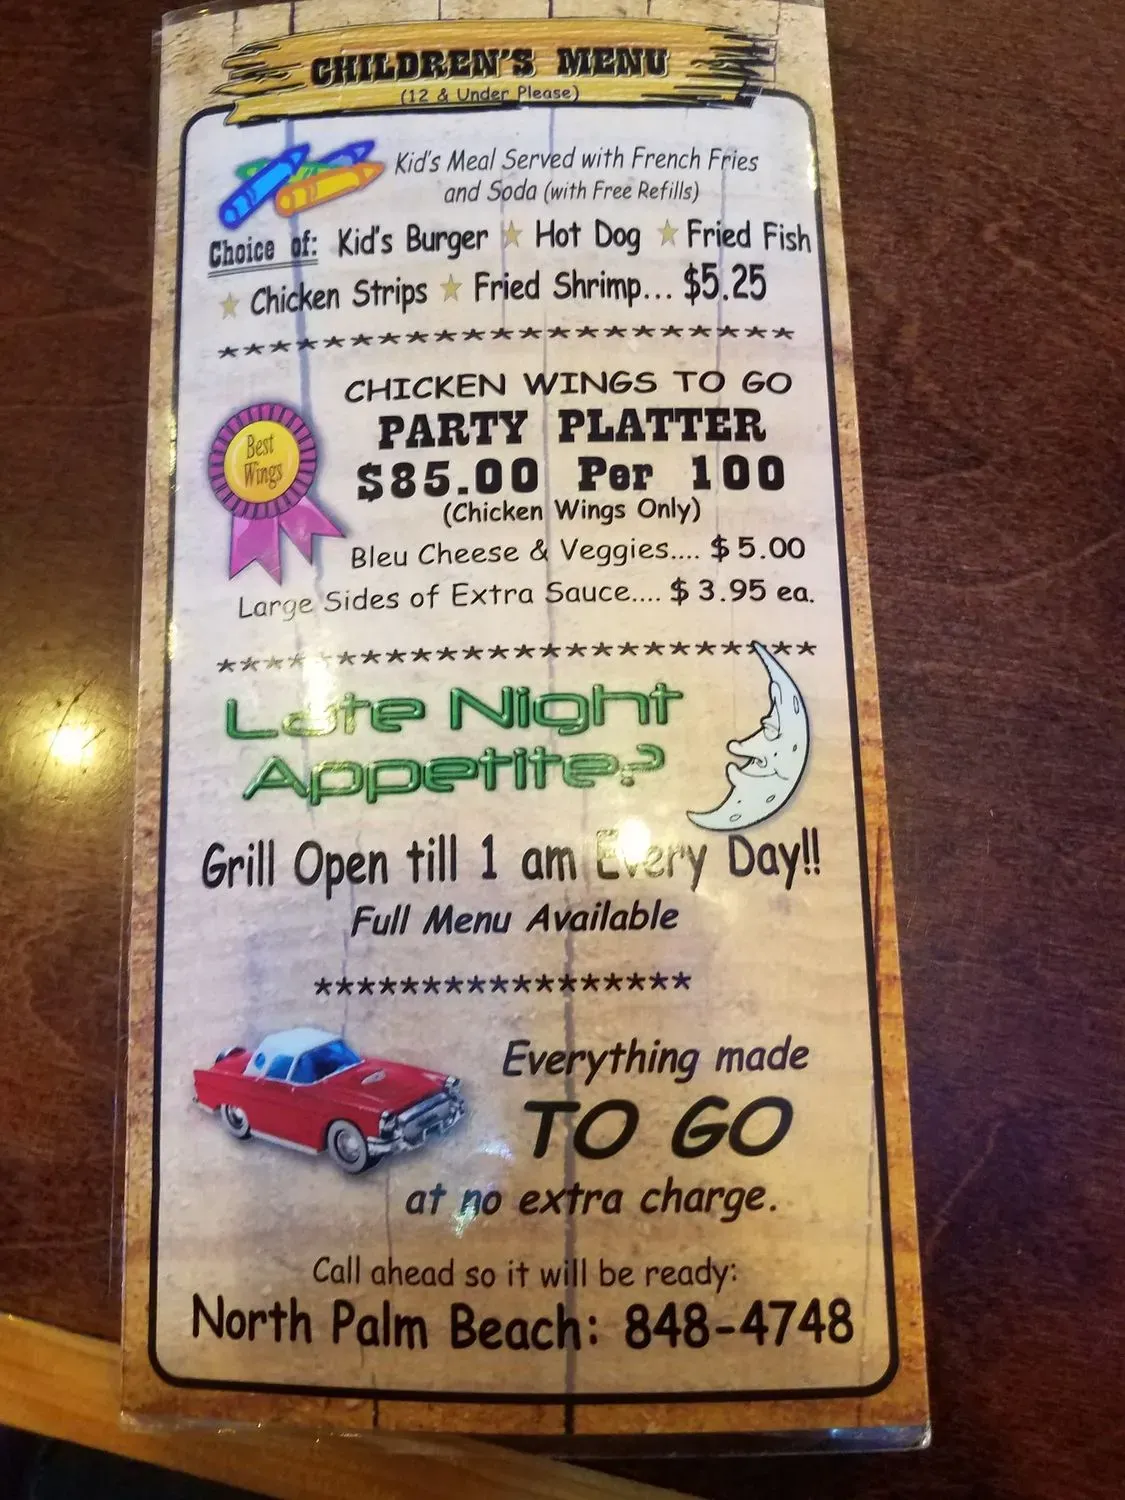 CHILDREN'S MENU
(12 & Under Please)
Kid's Meal Served with French Fries
and Soda (with Free Refills)
Choice of: Kid's Burger ★ Hot Dog ★ Fried Fish
★ Chicken Strips ★ Fried Shrimp... $5.25
**********************
CHICKEN WINGS TO GO
PARTY PLATTER
$85.00 Per 100
(Chicken Wings Only)
Best
Wings
Bleu Cheese & Veggies.... $5.00
Large Sides of Extra Sauce.... $3.95 ea.
***********************
Late Night
Appetite?
Grill Open till 1 am Every Day!!
Full Menu Available
*****************
Everything made
TO GO
at no extra charge.
Call ahead so it will be ready:
North Palm Beach: 848-4748